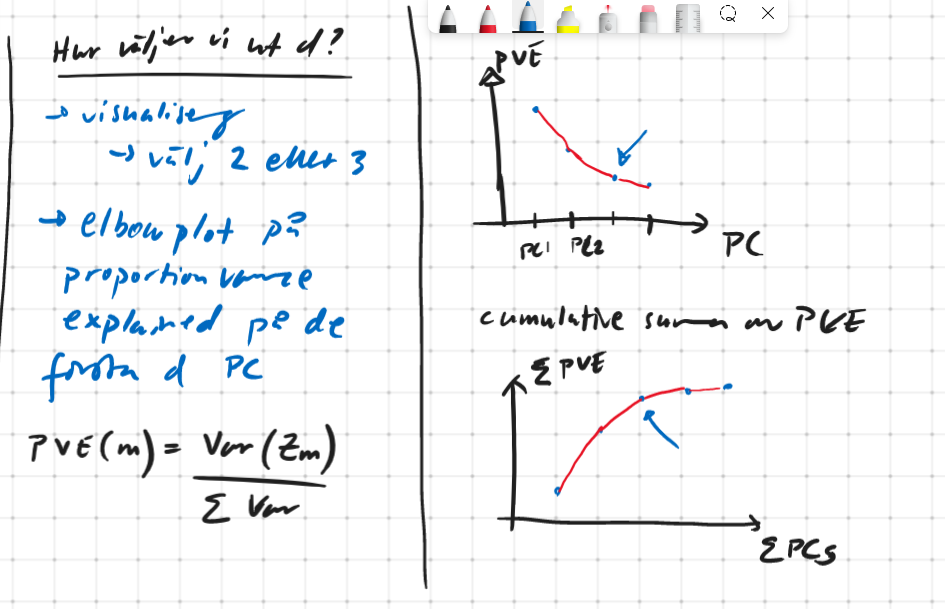 Hur väljer vi ut d?
→ visualisering
→ välj 2 eller 3
→ elbow plot på
proportion variance
explained på de
första d PC
PVE(m) = Var(Zm)
Σ Var
PVE
PC1 PC2
PC
cumulative summan av PVE
Σ PVE
Σ PCs